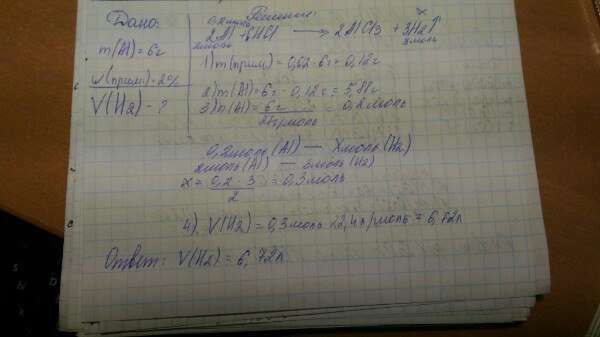 Дано:
m(Al)=6г
w(прим)=2%
V(H2) - ?
Решение:
0,2моль x
2Al + 6HCl → 2AlCl3 + 3H2↑
2моль 3моль
1) m(прим) = 0,02 · 6г = 0,12г
2) m(Al) = 6г - 0,12г = 5,88г
3) n(Al) = 6г / 27г/моль = 0,2моль
0,2моль (Al) — Xмоль (H2)
2моль (Al) — 3моль (H2)
x = 0,2 · 3 / 2 = 0,3моль
4) V(H2) = 0,3моль · 22,4л/моль = 6,72л
Ответ: V(H2) = 6,72л